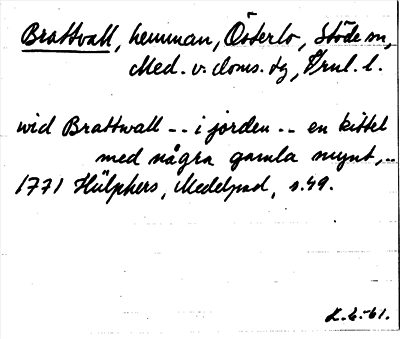 Brattvall, hemman, Österlo, Stöde sn,
Med. v. doms. dg, Vrnl. l.
wid Brattwall -- i jorden -- en kittel
med några gamla mynt, ..
1771 Hülphers, Medelpad, s. 49.